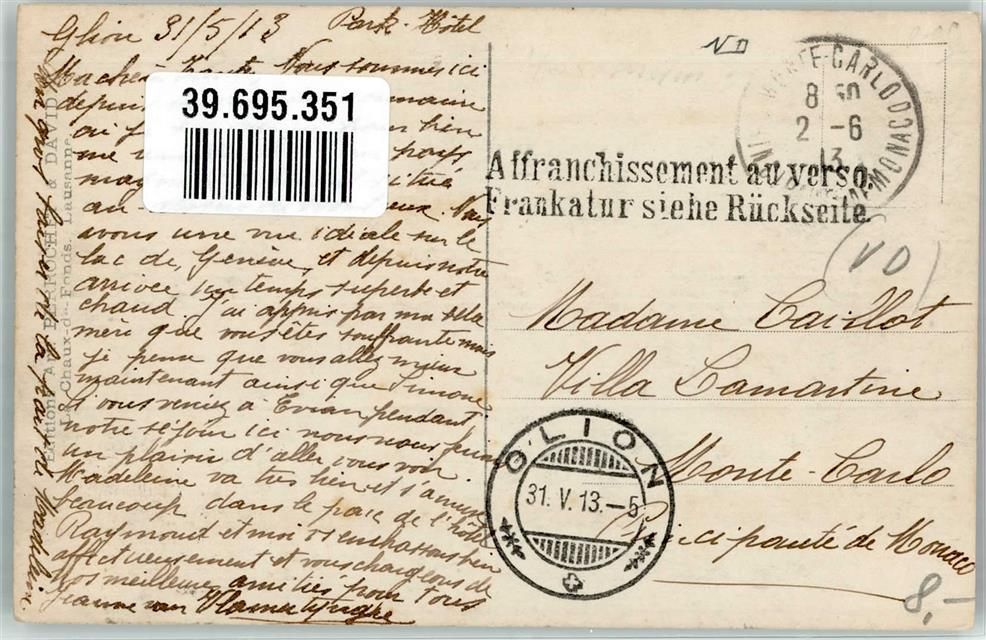 Glion 31/5/13 Park-Hôtel
Ma chère Tante Nous sommes ici
depuis semaine
bien
me pays
situé
au Nous
avons une vue idéale sur le
lac de Genève, et depuis notre
arrivée un temps superbe et
chaud. J'ai appris par ma belle
mère que vous êtes souffrante mais
je pense que vous allez mieux
maintenant ainsi que Simone
si vous veniez à Evian pendant
notre séjour ici nous nous ferons
un plaisir d'aller vous voir
Madeleine va très bien et s'amuse
beaucoup dans le parc de l'hôtel
Raymond et moi vous embrassons bien
affectueusement et vous chargeons de
nos meilleures amitiés pour tous
Jeanne van Vlamertynghe
un gros baiser de la part de Madeleine
Edition A. PERROCHET & DAVID
La Chaux-de-Fonds, Lausanne
39.695.351
ND
MONTE-CARLO
8 50
2 -6
13
MONACO
Affranchissement au verso.
Frankatur siehe Rückseite.
(VD)
Madame Caillot
Villa Lamartine
Monte-Carlo
Principauté de Monaco
GLION
31. V. 13.-5
8,-